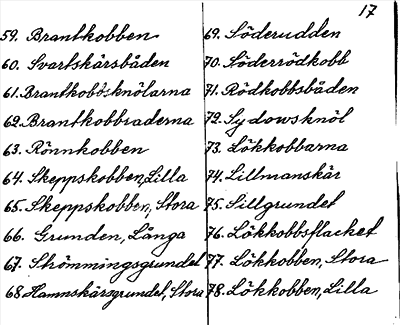 17
59. Brantkobben
60. Svartskärsbåden
61. Brantkobbsknölarna
62. Brantkobbraderna
63. Rönnkobben
64. Skeppskobben, Lilla
65. Skeppskobben, Stora
66. Grunden, Långa
67. Strömmingsgrundet
68 Hamnskärsgrundet, Stora
69. Söderudden
70. Söderrödkobb
71. Rödkobbsbåden
72. Sydowsknöl
73. Lökkobbarna
74. Lillmanskär
75. Sillgrundet
76. Lökkobbsflacket
77. Lökkobben, Stora
78. Lökkobben, Lilla